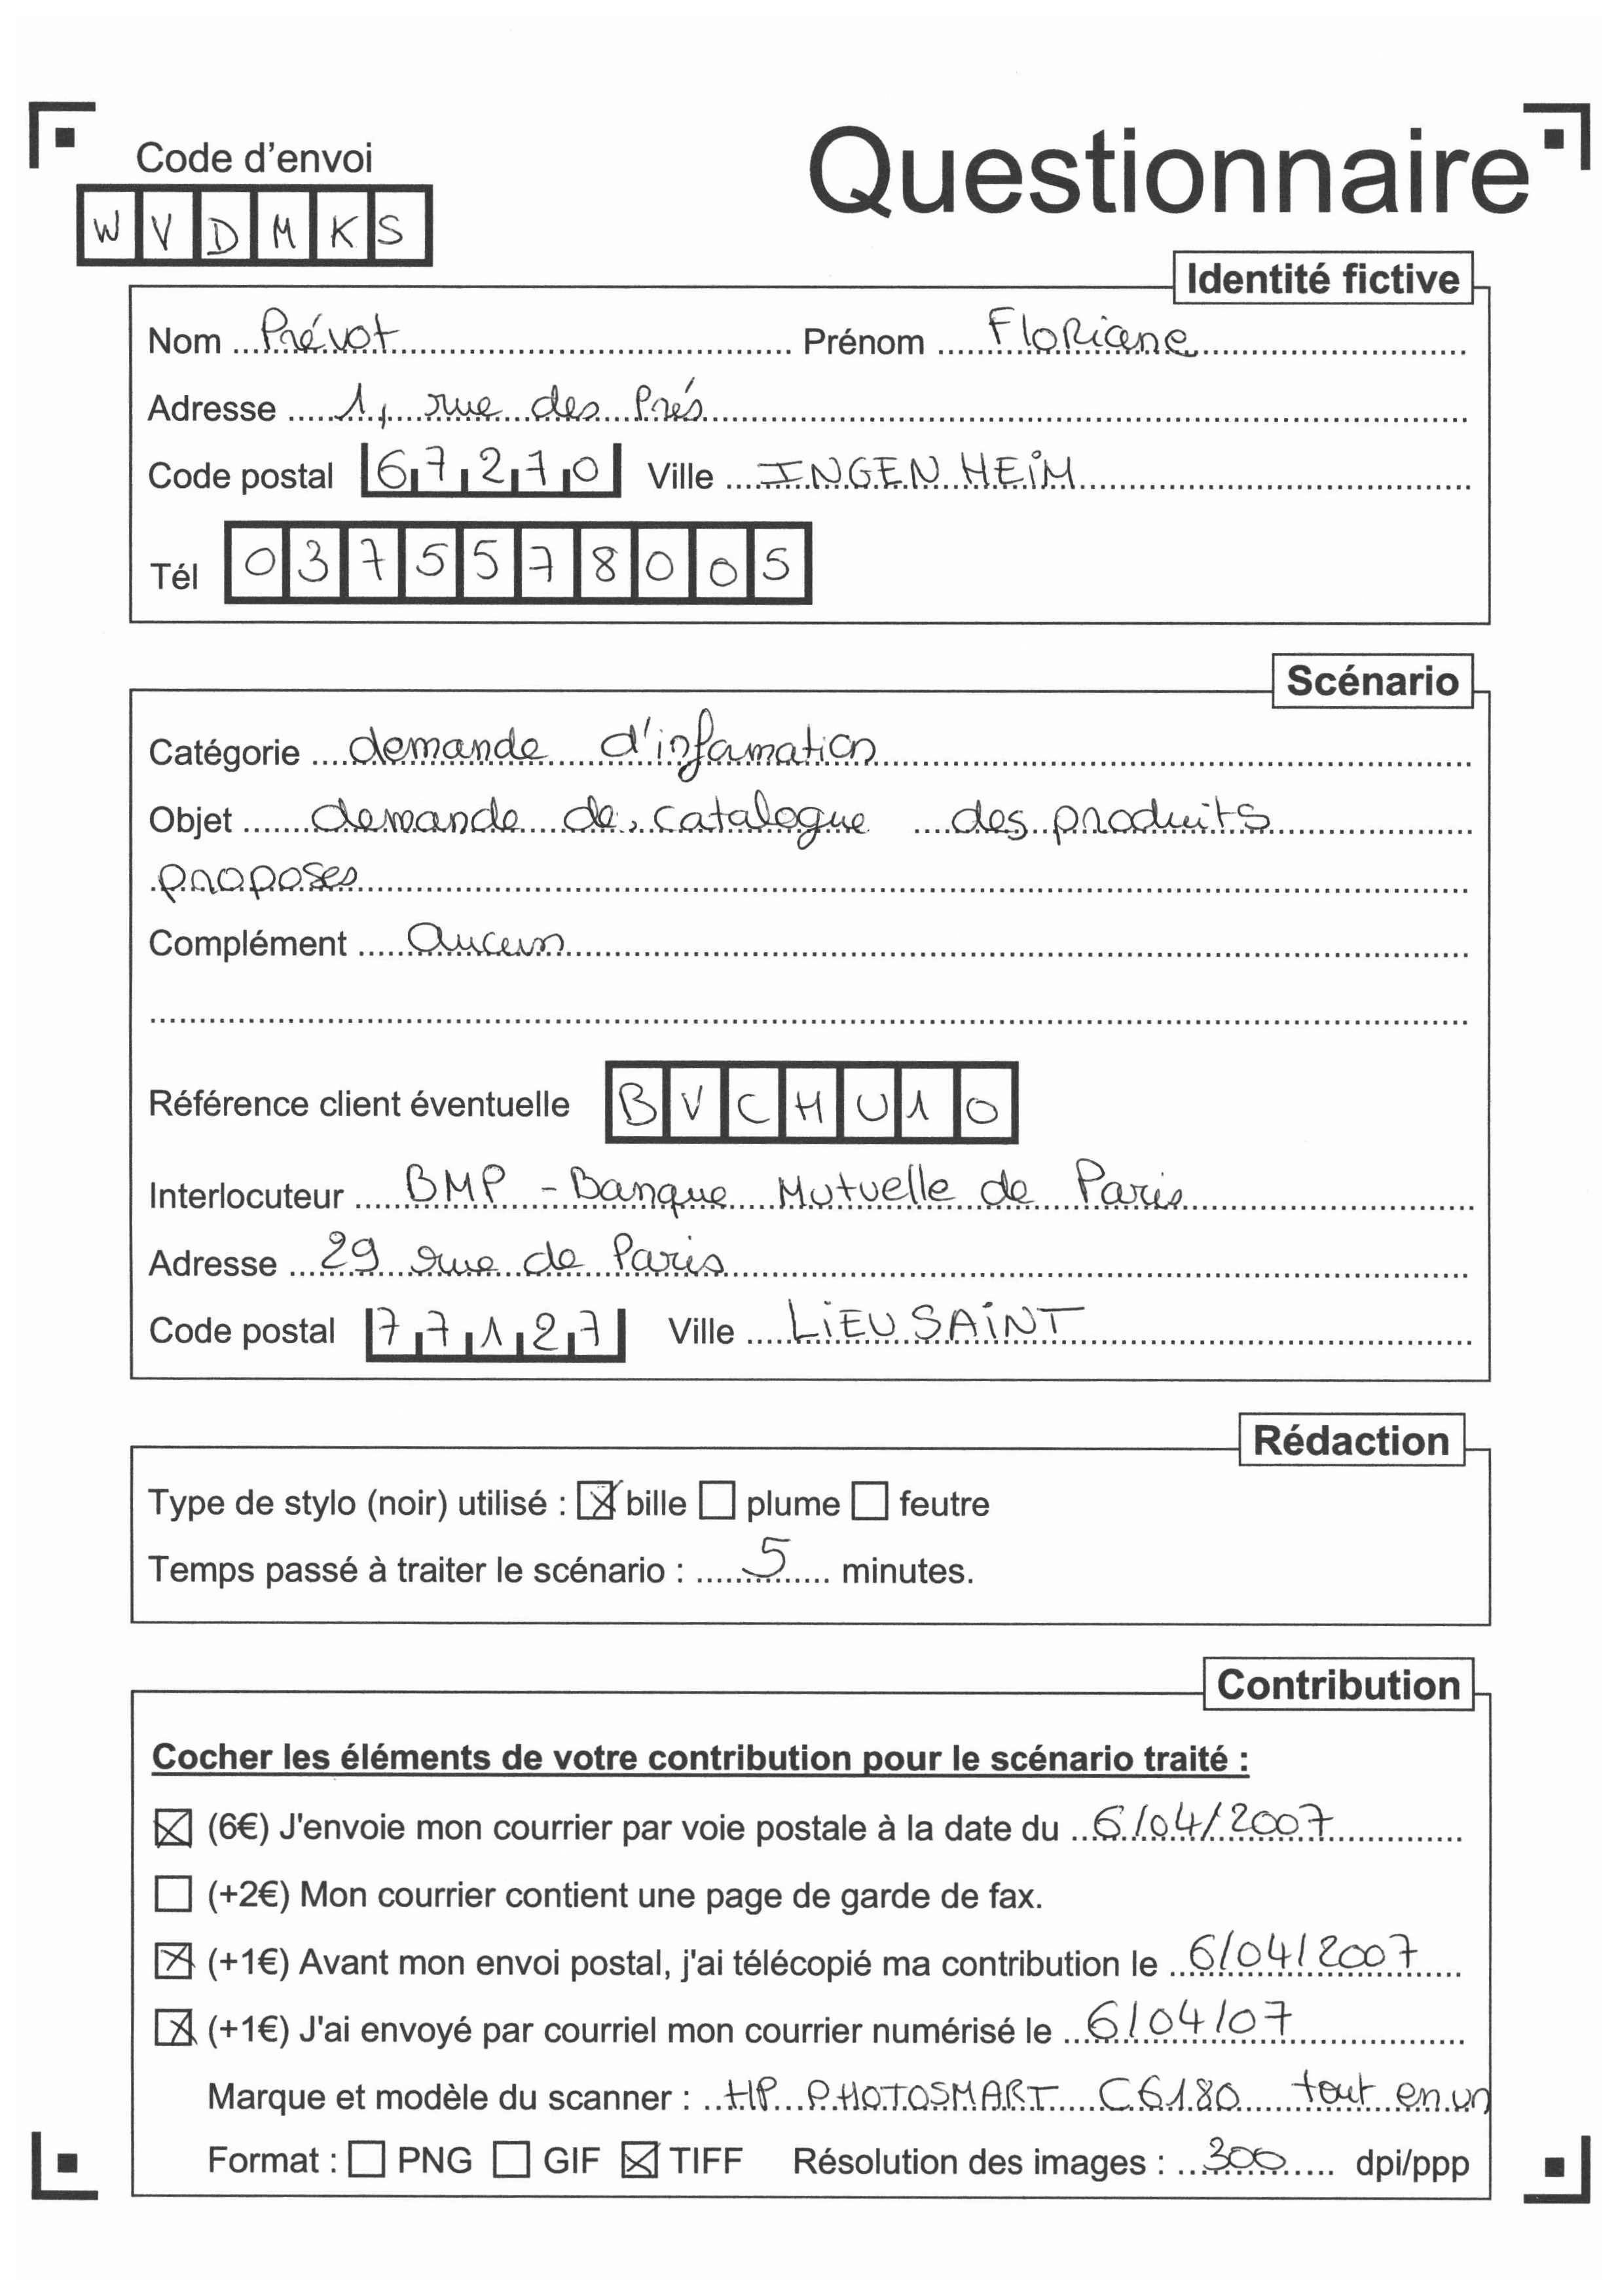 Code d'envoi
Questionnaire
WVDMKS
Identité fictive
Nom Prévot Prénom Floriane
Adresse 1, rue des Prés
Code postal 67270 Ville INGENHEIM
Tél 0375578005
Scénario
Catégorie demande d'information
Objet demande de catalogue des produits
proposes
Complément aucun
Référence client éventuelle BVCHU10
Interlocuteur BMP - Banque Mutuelle de Paris
Adresse 29 rue de Paris
Code postal 77127 Ville LIEUSAINT
Rédaction
Type de stylo (noir) utilisé : ☒ bille ☐ plume ☐ feutre
Temps passé à traiter le scénario : 5 minutes.
Contribution
Cocher les éléments de votre contribution pour le scénario traité :
☒ (6€) J'envoie mon courrier par voie postale à la date du 6/04/2007
☐ (+2€) Mon courrier contient une page de garde de fax.
☒ (+1€) Avant mon envoi postal, j'ai télécopié ma contribution le 6/04/2007
☒ (+1€) J'ai envoyé par courriel mon courrier numérisé le 6/04/07
Marque et modèle du scanner : HP PHOTOSMART C6180 tout en un
Format : ☐ PNG ☐ GIF ☒ TIFF Résolution des images : 300 dpi/ppp